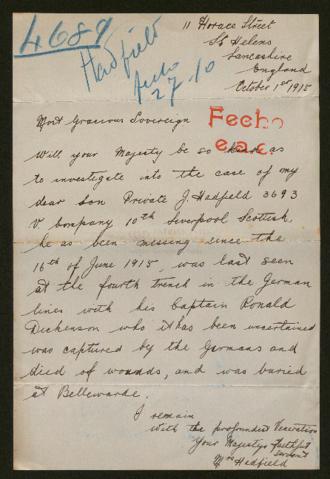 4689
Hadfield
fecho
27-10
11 Horace Street
St Helens
Lancashire
England
October 1st 1915
Fecho
e.a.c.
Most Gracious Sovereign
Will your Majesty be so kind as
to investigate into the case of my
dear Son Private J. Hadfield 3693
V Company 10th Liverpool Scottish
he as been missing since the
16th of June 1915, was last seen
at the fourth trench in the German
lines with his Captain Ronald
Dickenson who it has been
was captured by the Germans and
died of wounds, and was buried
at Bellewarde.
I remain
with the profoundest Veneration
Your Majestys faithful
servant
Mrs Hadfield